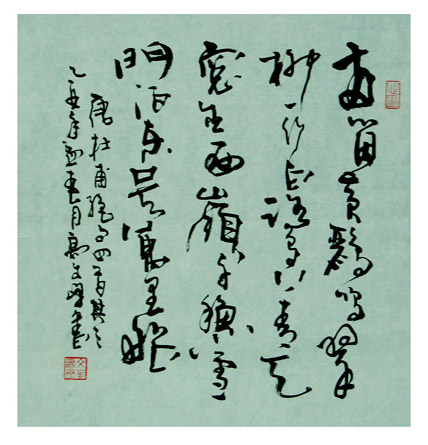 兩箇黃鸝鳴翠
柳一行白鷺上青天
窗含西嶺千秋雪
門泊東吳萬里船
唐杜甫絕句四首其三
年春月書